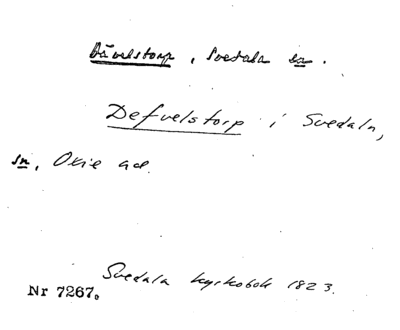 Dävelstorp, Svedala sn.
Defvelstorp i Svedala,
sn, Oxie hd.
Svedala kyrkobok 1823.
Nr 7267.